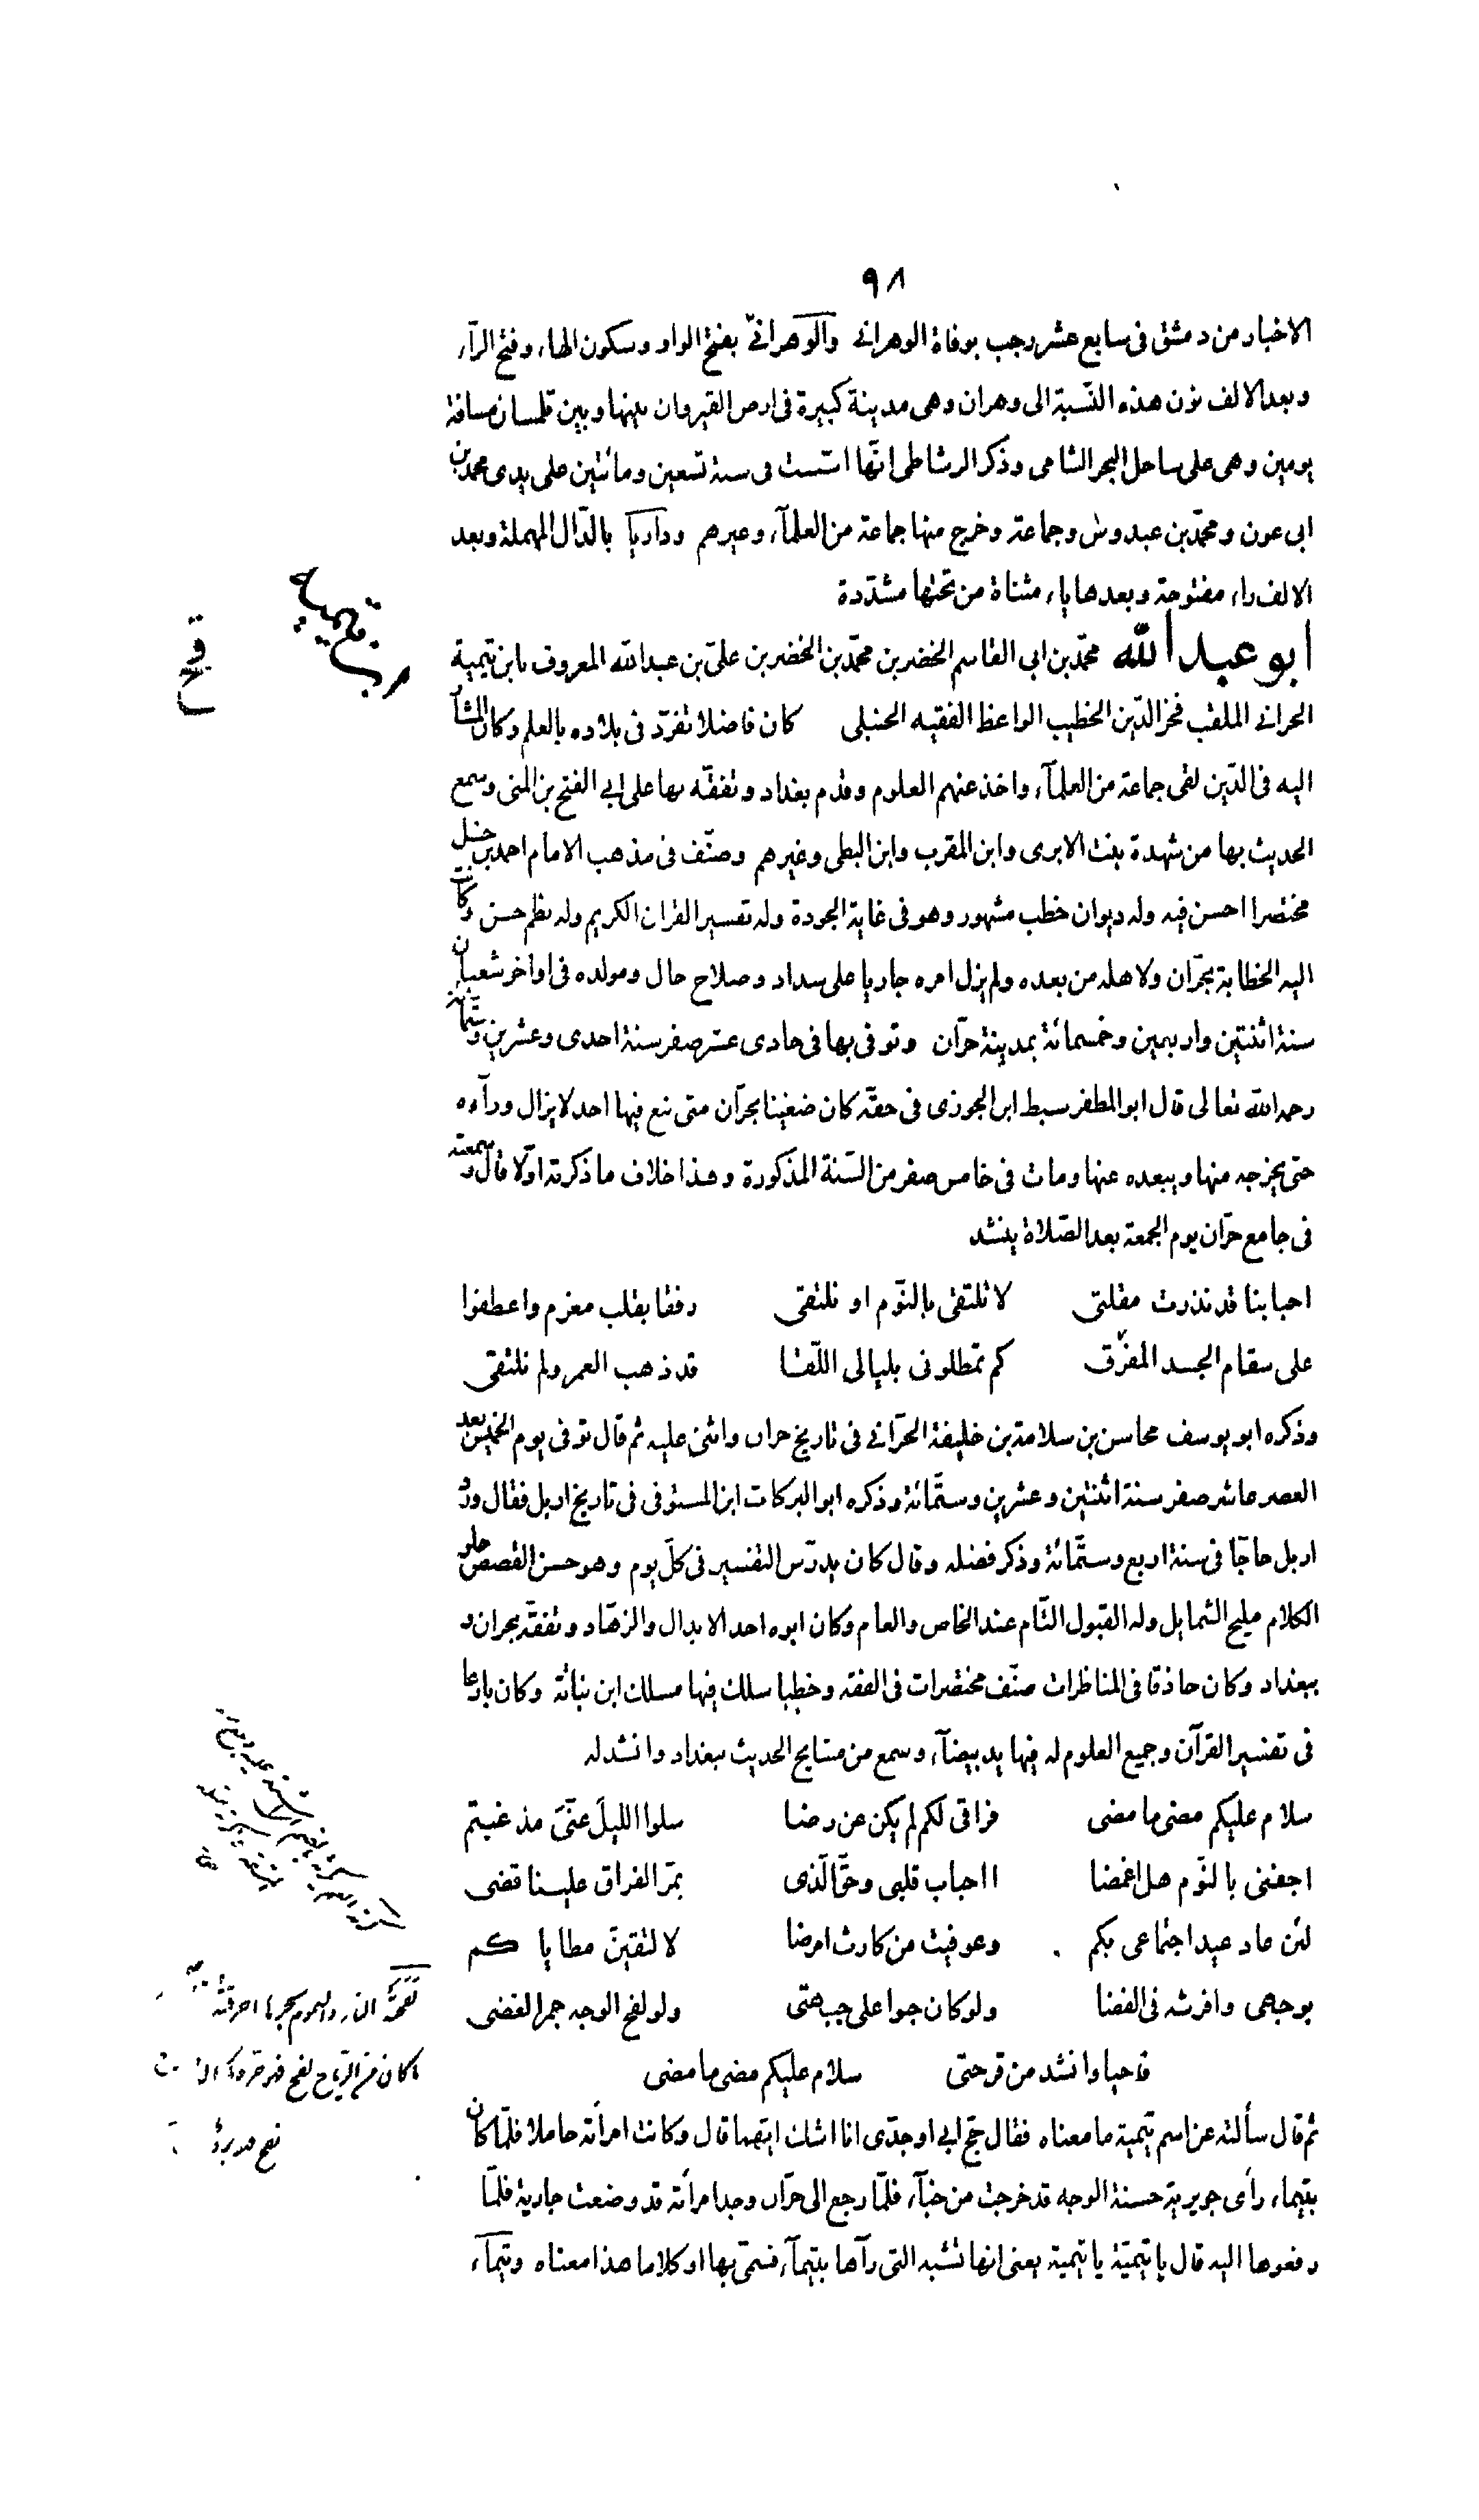 ٩٨
الاخبار من دمشق فى سابع عشر رجب بوفاة الوهرانى والوهرانىّ بفتح الواو وسكون الهاء وفتح الرآء
وبعد الالف نون هذه النّسبة الى وهران وهى مدينة كبيرة فى ارض القيروان بينها وبين تلمسان مسافة
يومين وهى على ساحل البحر الشامى وذكر الرشاطى انّها اسّست فى سنة تسعين ومائتين على يدى محمد بن
ابى عون ومحمّد بن عبدوس وجماعة وخرج منها جماعة من العلمآء وغيرهم وداريا بالدّال المهملة وبعد
الالف راء مفتوحة وبعدها ياء مثناة من تحتها مشدّدة
أبو عبد الله محمّد بن ابى القاسم الخضر بن محمّد بن الخضر بن علىّ بن عبد الله المعروف بابن تيمية
الحرانى الملقب فخر الدّين الخطيب الواعظ الفقيه الحنبلى كان فاضلا تفرّد فى بلاده بالعلم وكان المشار
اليه فى الدّين لقى جماعة من العلمآء واخذ عنهم العلوم وقدم بغداد وتفقّه بها على ابى الفتح بن المنى وسمع
الحديث بها من شهدة بنت الابرى وابن المقرب وابن البطى وغيرهم وصنّف فى مذهب الامام احمد بن حنبل
مختصرا احسن فيه وله ديوان خطب مشهور وهو فى غاية الجودة وله تفسير القران الكريم وله نظم حسن وكانت
اليه الخطابة بحرّان ولاهله من بعده ولم يزل امره جاريا على سداد وصلاح حال ومولده فى اواخر شعبان
سنة اثنتين واربعين وخمسمائة بمدينة حرّان وتوفى بها فى حادى عشر صفر سنة احدى وعشرين وستّمائة
رحمه الله تعالى قال ابو المظفر سبط ابن الجوزى فى حقّه كان ضنينا بحرّان متى نبع فيها احد لا يزال ورآءه
حتى يخرجه منها ويبعده عنها ومات فى خامس صفر من السّنة المذكورة وهذا خلاف ما ذكرته اوّلا قال وسمعته
فى جامع حرّان يوم الجمعة بعد الصّلاة ينشد
احبابنا قد نذرت مقلتى لا تلتقى بالنّوم او نلتقى رفقا بقلب مغرم واعطفوا
على سقام الجسد المغرّق كم تمطلونى بليالى اللّقا قد ذهب العمر ولم نلتقى
وذكره ابو يوسف محاسن بن سلامة بن خليفة الحرّانى فى تاريخ حران واثنى عليه ثم قال توفى يوم الخميس بعد
العصر عاشر صفر سنة اثنتين وعشرين وستّمائة وذكره ابو البركات ابن المستوفى فى تاريخ اربل فقال ورد
اربل حاجّا فى سنة اربع وستّمائة وذكر فضله وقال كان يدرّس التفسير فى كلّ يوم وهو حسن القصص حلو
الكلام مليح الشمايل وله القبول التّام عند الخاص والعام وكان ابوه احد الابدال والزهّاد وتفقّه بحران و
ببغداد وكان حاذقا فى المناظرات صنّف مختصرات فى الفقه وخطبا سلك فيها مسلك ابن نباتة وكان بارعا
فى تفسير القرآن وجميع العلوم له فيها يد بيضآء وسمع من مشايخ الحديث ببغداد وانشد له
سلام عليكم مضى ما مضى فراقى لكم لم يكن عن رضا سلوا الليلَ عنّىَ مذ غبتم
اجفنى بالنّوم هل اغمضا ااحباب قلبى وحقّ الّذى بمرّ الفراق علينا قضى
لئن عاد عيد اجتماعى بكم وعوفيت من كارث امرضا لالتقينّ مطاياكم
بوجهى وافرشه فى الفضا ولو كان حبوا على جبهتى ولو لفح الوجه جمر الغضى
فاحيا وانشد من فرحتى سلام عليكم مضى ما مضى
ثم قال سألته عن اسم تيمية ما معناه فقال حجّ ابى او جدّى انا اشك ايّهما قال وكانت امرأته حاملا فلمّا كان
بتيماء رأى جويرية حسنة الوجه قد خرجت من خبآء فلمّا رجع الى حرّان وجد امرأته قد وضعت جارية فلمّا
رفعوها اليه قال يا تيميّة يا تيمية يعنى انها تشبه التى رآها بتيمآء فسمّى بها او كلاما هذا معناه وتيمآء